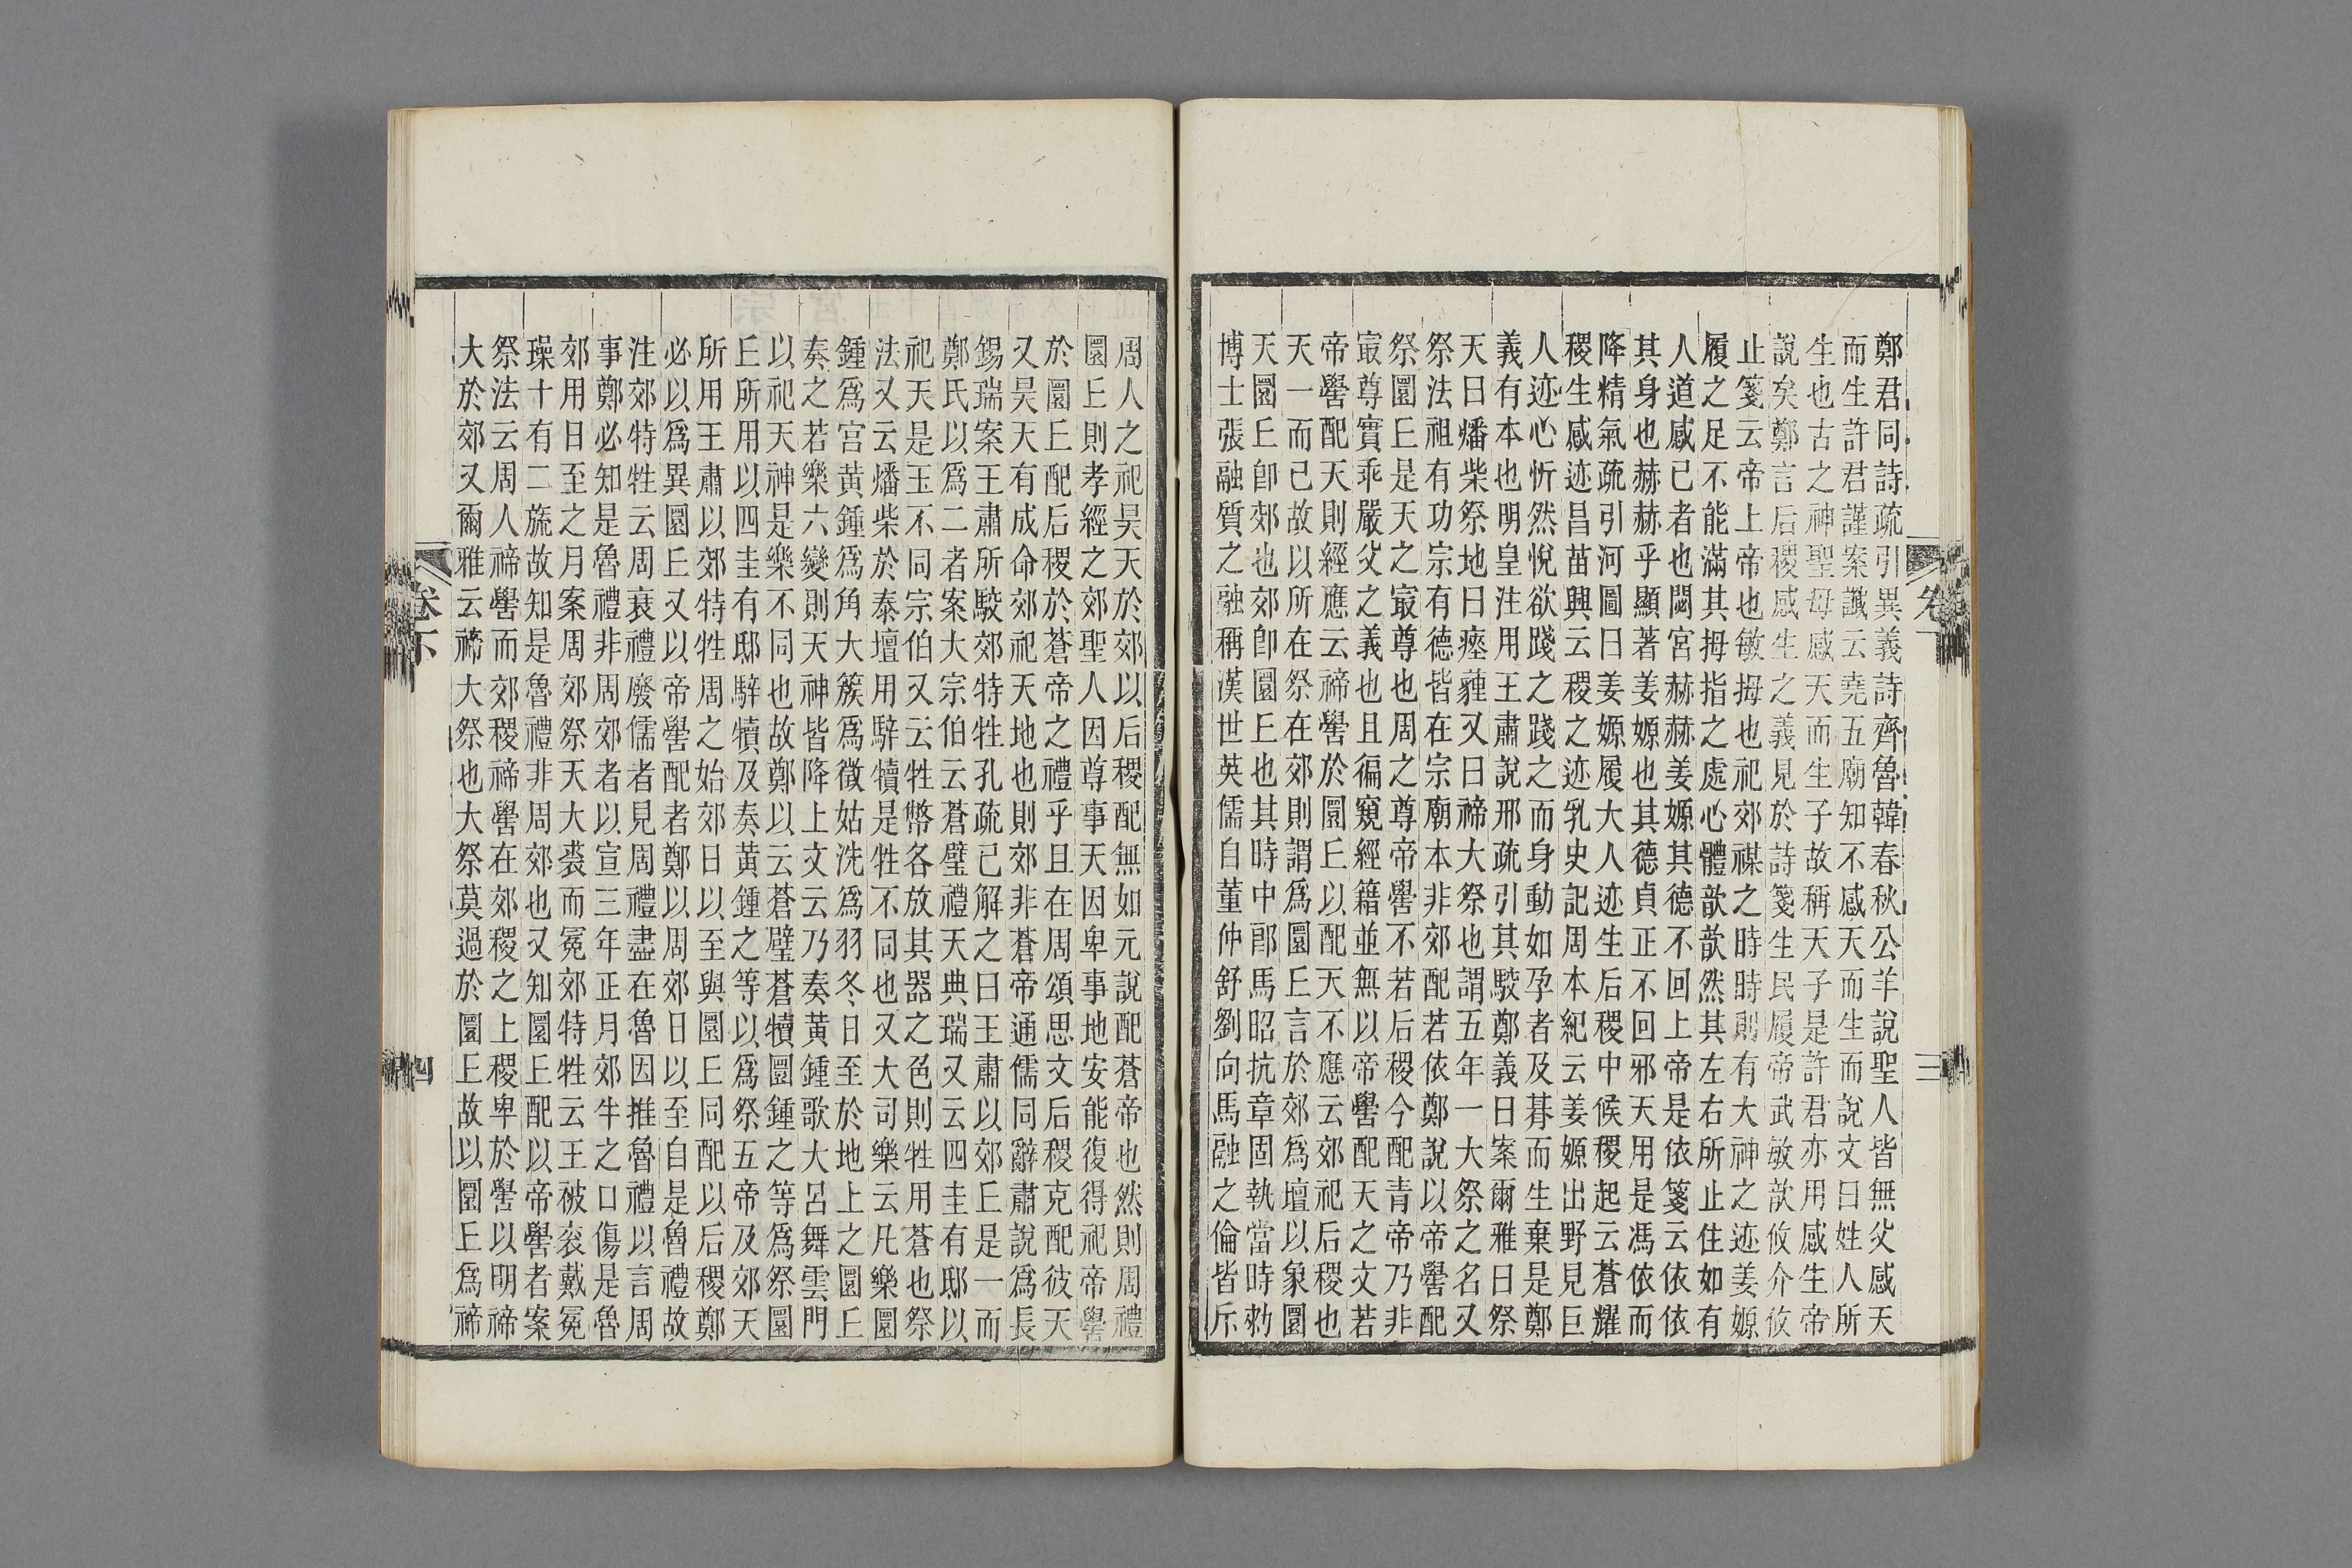 鄭君同詩疏引異義詩齊魯韓春秋公羊說聖人皆無父感天
而生許君謹案讖云堯五廟知不感天而生而說文曰姓人所
生也古之神聖母感天而生子故稱天子是許君亦用感生帝
說矣鄭言后稷感生之義見於詩箋生民履帝武敏歆攸介攸
止箋云帝上帝也敏拇也祀郊禖之時時則有大神之迹姜嫄
履之足不能滿其拇指之處心體歆歆然其左右所止住如有
人道感己者也閟宮赫赫姜嫄其德不回上帝是依箋云依依
其身也赫赫乎顯著姜嫄也其德貞正不回邪天用是馮依而
降精氣疏引河圖曰姜嫄履大人迹生后稷中候稷起云蒼耀
稷生感迹昌苗興云稷之迹乳史記周本紀云姜嫄出野見巨
人迹心忻然悅欲踐之踐之而身動如孕者及朞而生棄是鄭
義有本也明皇注用王肅說邢疏引其駮鄭義曰案爾雅曰祭
天曰燔柴祭地曰瘞薶又曰禘大祭也謂五年一大祭之名又
祭法祖有功宗有德皆在宗廟本非郊配若依鄭說以帝嚳配
祭圜丘是天之㝡尊也周之尊帝嚳不若后稷今配青帝乃非
㝡尊實乖嚴父之義也且徧窺經籍並無以帝嚳配天之文若
帝嚳配天則經應云禘嚳於圜丘以配天不應云郊祀后稷也
天一而已故以所在祭在郊則謂爲圜丘言於郊爲壇以象圜
天圜丘卽郊也郊卽圜丘也其時中郞馬昭抗章固執當時勑
博士張融質之融稱漢世英儒自董仲舒劉向馬融之倫皆斥
周人之祀昊天於郊以后稷配無如元說配蒼帝也然則周禮
圜丘則孝經之郊聖人因尊事天因卑事地安能復得祀帝嚳
於圜丘配后稷於蒼帝之禮乎且在周頌思文后稷克配彼天
又昊天有成命郊祀天地也則郊非蒼帝通儒同辭肅說爲長
錫瑞案王肅所駮郊特牲孔疏已解之曰王肅以郊丘是一而
鄭氏以爲二者案大宗伯云蒼璧禮天典瑞又云四圭有邸以
祀天是玉不同宗伯又云牲幣各放其器之色則牲用蒼也祭
法又云燔柴於泰壇用騂犢是牲不同也又大司樂云凡樂圜
鍾爲宮黃鍾爲角大簇爲徵姑洗爲羽冬日至於地上之圜丘
奏之若樂六變則天神皆降上文云乃奏黃鍾歌大呂舞雲門
以祀天神是樂不同也故鄭以云蒼璧蒼犢圜鍾之等爲祭圜
丘所用以四圭有邸騂犢及奏黃鍾之等以爲祭五帝及郊天
所用王肅以郊特牲周之始郊日以至與圜丘同配以后稷鄭
必以爲異圜丘又以帝嚳配者鄭以周郊日以至自是魯禮故
注郊特牲云周衰禮廢儒者見周禮盡在魯因推魯禮以言周
事鄭必知是魯禮非周郊者以宣三年正月郊牛之口傷是魯
郊用日至之月案周郊祭天大裘而冕郊特牲云王被袞戴冕
璪十有二旒故知是魯禮非周郊也又知圜丘配以帝嚳者案
祭法云周人禘嚳而郊稷禘嚳在郊稷之上稷卑於嚳以明禘
大於郊又爾雅云禘大祭也大祭莫過於圜丘故以圜丘爲禘
卷下
四
三